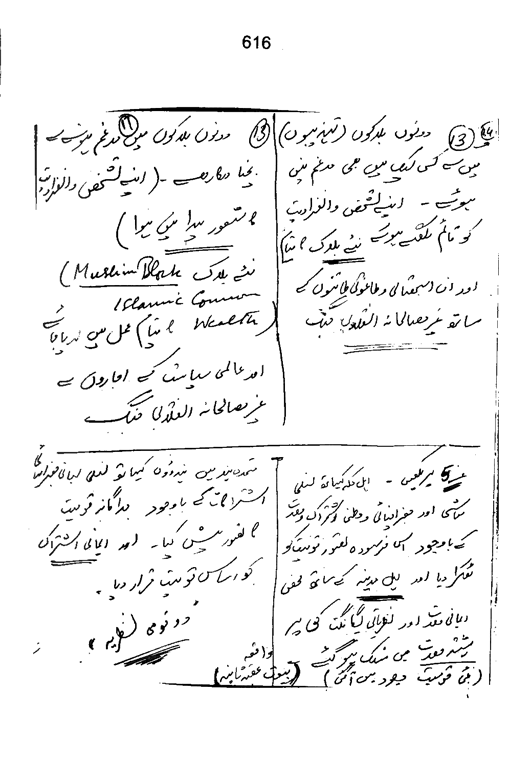 616
(13) دونوں بلاکوں (تہذیبوں)
میں سے کسی ایک میں بھی مدغم نہیں
ہوئے - اپنے تشخص و انفرادیت
کو قائم رکھتے ہوئے نئے بلاک کا قیام
اور ان استحصالی و طاغوتی طاقتوں کے
ساتھ غیر مصالحانہ انقلابی جنگ
(13) دونوں بلاکوں میں مدغم ہونے سے
بچنا درکار ہے - (اپنے تشخص و انفرادیت
کا شعور پیدا میں ہوا)
نئے بلاک (Muslim Block
Islamic Common
Wealth) کا قیام عمل میں لایا جائے
اور عالمی سیاست کے اجاروں سے
غیر مصالحانہ انقلابی جنگ
- اہل مکہ کیساتھ نسلی
معاشی اور جغرافیائی و وطنی اشتراک و وحدت
کے باوجود اس فرسودہ تصور قومیت کو
ٹھکرا دیا اور اہل مدینہ کے ساتھ محض
ایمانی وحدت اور نظریاتی یگانگت کی بنا پر
رشتہ وحدت میں منسلک ہو گئے
(نئی قومیت وجود میں آئی)
متحدہ ہند میں ہندوؤں کیساتھ نسلی لسانی جغرافیائی
اشتراکات کے باوجود جداگانہ قومیت
کا تصور پیش کیا - اور ایمانی اشتراک
کو اساس قومیت قرار دیا -
"دو قومی نظریہ"
واقعہ
(بیعت عقبہ ثانیہ)